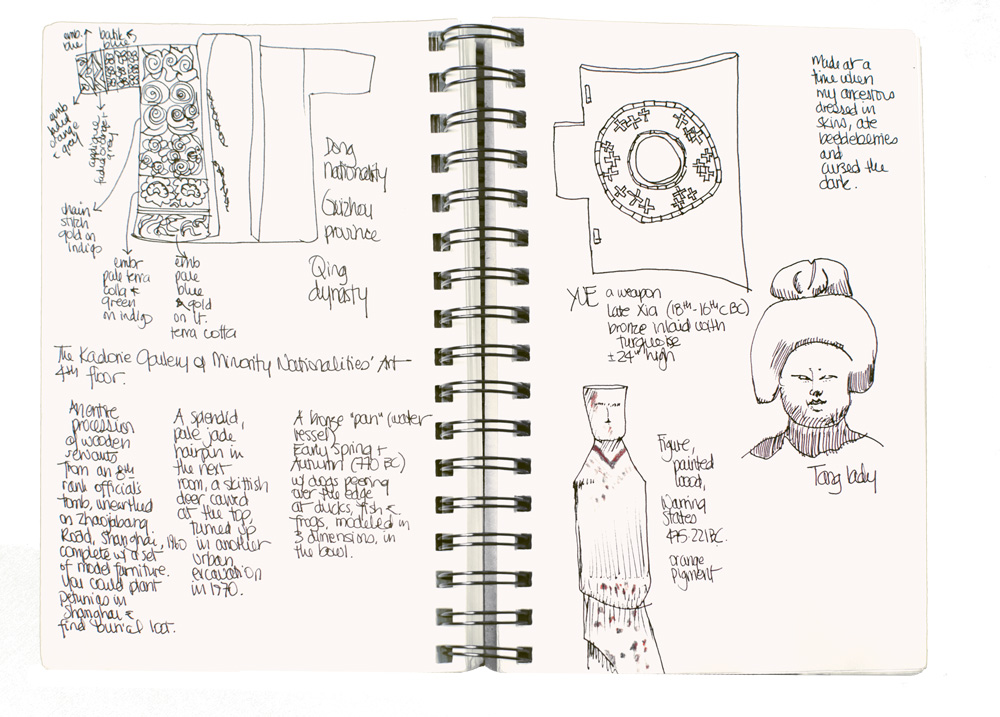 emb.
blue
batik &
blue
emb
faded
orange
& grey
applique
faded orange +
grey
chain
stitch
gold on
indigo
embr
pale terra
cotta &
green
on indigo
emb
pale
blue
& gold
on lt.
terra cotta
Dong
nationality
Guizhou
province
Qing
dynasty
The Kadorie Gallery of Minority Nationalities' Art
4th floor.
An entire
procession
of wooden
servants
from an 8th
rank officials
tomb, unearthed
on Zhaojiabang
Road, Shanghai, 1960
complete w/ a set
of model furniture.
You could plant
petunias in
Shanghai &
find burial loot.
A splendid,
pale jade
hairpin in
the next
room, a skittish
deer carved
at the top,
turned up
in another
urban
excavation
in 1970.
A bronze "pan" (water
vessel)
Early Spring +
Autumn (770 BC)
w/ dogs peering
over the edge
at ducks, fish &
frogs, modeled in
3 dimensions, in
the bowl.
Made at a
time when
my ancestors
dressed in
skins, ate
beetleberries
and
cursed the
dark.
YUE a weapon
late Xia (18th-16th c BC)
bronze inlaid with
turquoise
±24" high
Figure,
painted
wood,
Warring
States
475-221 BC.
orange
pigment
Tang lady